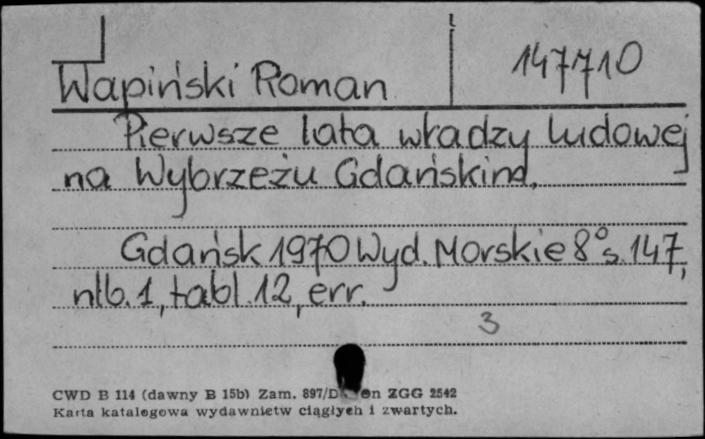 Wapiński Roman 147710
Pierwsze lata władzy ludowej
na Wybrzeżu Gdańskim.
Gdańsk 1970 Wyd. Morskie 8° s. 147,
nlb. 1, tabl. 12, err.
3
CWD B 114 (dawny B 15b) Zam. 897/D ZGG 2542
Karta katalogowa wydawnictw ciągłych i zwartych.